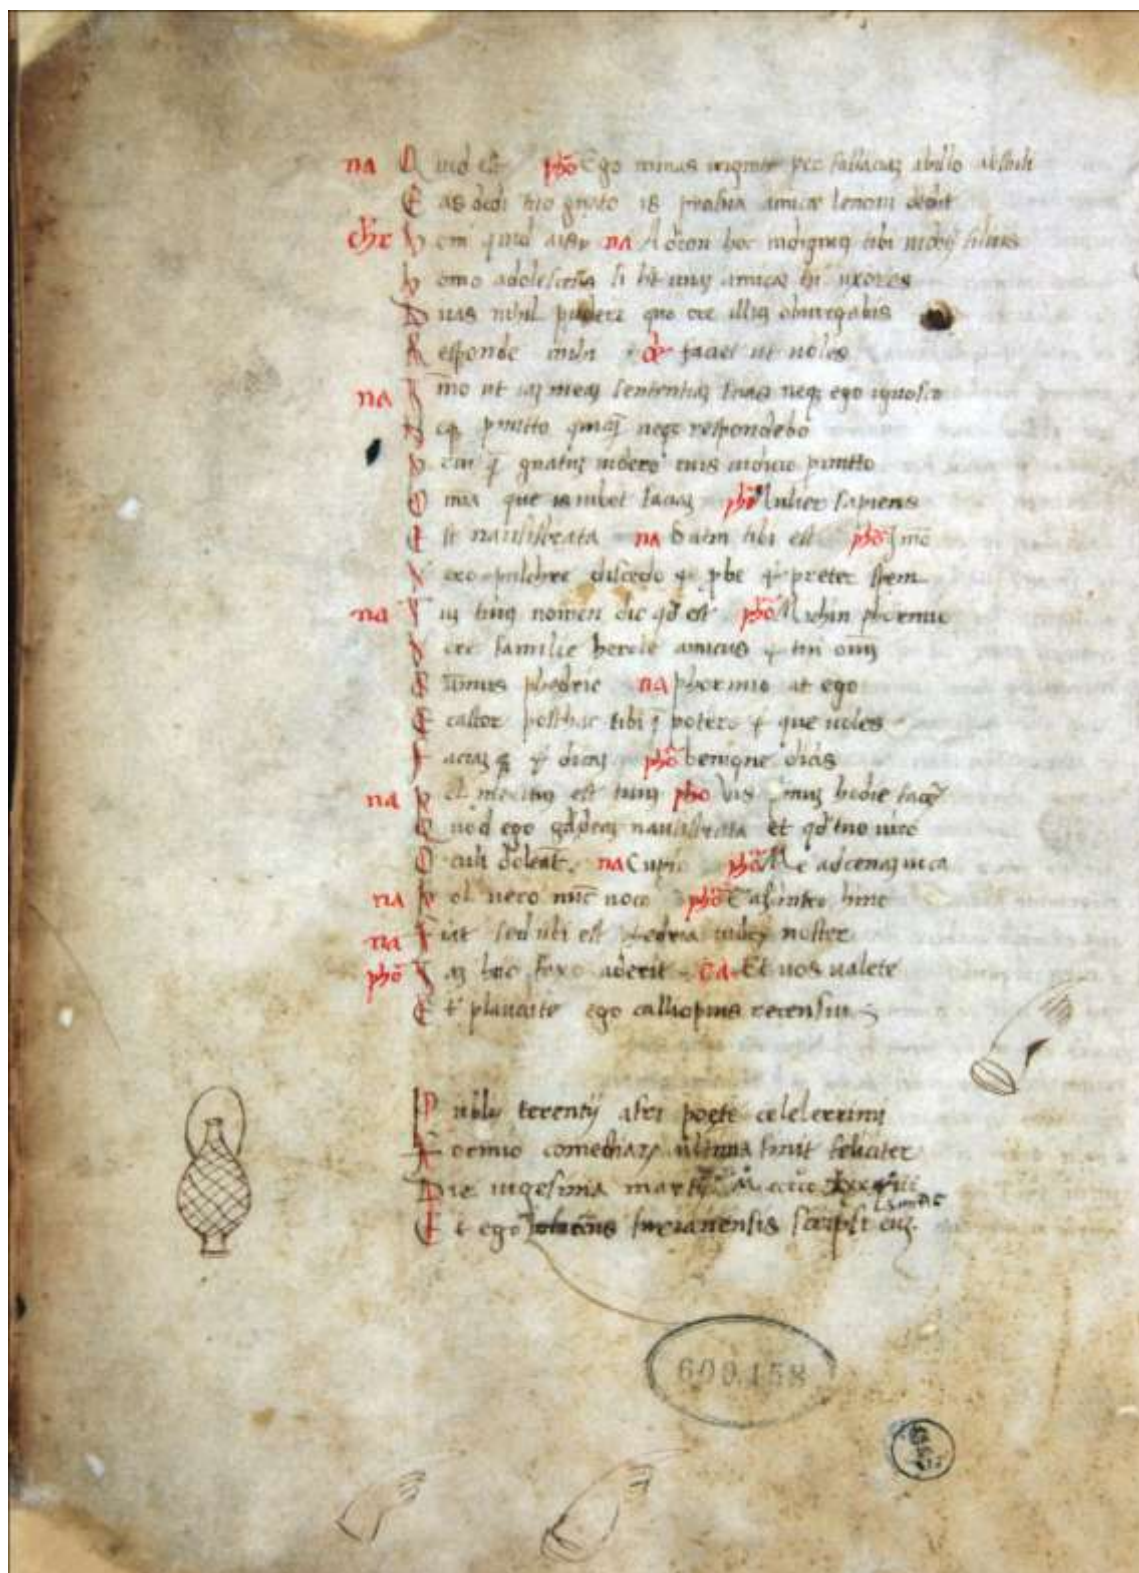 na Quid est phō Ego minas triginta per fallaciaʒ ab illo abstuli
Eas dedi tuo gnato is pro sua amica lenoni dedit
chr hem quid ais na Adeon hoc indignuʒ tibi uidetʒ filius
homo adolescens si hēt unaʒ amicaʒ tu uxores
Duas nihil pudere quo ore illuʒ obiurgabis
Responde mihi faciet ut uoles
na Imo ut iaʒ meaʒ sententiaʒ scias neqʒ ego ignosco
neqʒ pmitto neqʒ respondebo
gnatus tuis iudicio pmitto
que is iubet faciaʒ phō Mulier sapiens
Est nausistrata na Satin tibi est phō Imo
Vero pulchre discedo & pbe & preter spem
na Tu tuuʒ nomen dic qd est phō Michin phormio
Vestre familie hercle amicus & tuo
Summus phedrie na phormio at ego
Ecastor posthac tibi q potero & que uoles
Faciaʒ qʒ & dicaʒ phō benigne dicis
na pol merituʒ est tuuʒ phō Vis primuʒ hodie facere
Quod ego gaudeaʒ nausistrata et qd tuo uiro
Oculi doleant na Cupio phō Me ad cenaʒ uoca
na pol uero nunc uoco phō Eaʒ intro hinc
na Fiat sed ubi est fedria iudex noster
phō Iaʒ hic faxo aderit ca Et uos ualete
Et plaudite ego calliopius recensui

Publij terentij afri poęte celeberrimi
Formio comediaꝝ ultima finit feliciter
Die uigesima martij
Et ego surianensis scripsi
600458